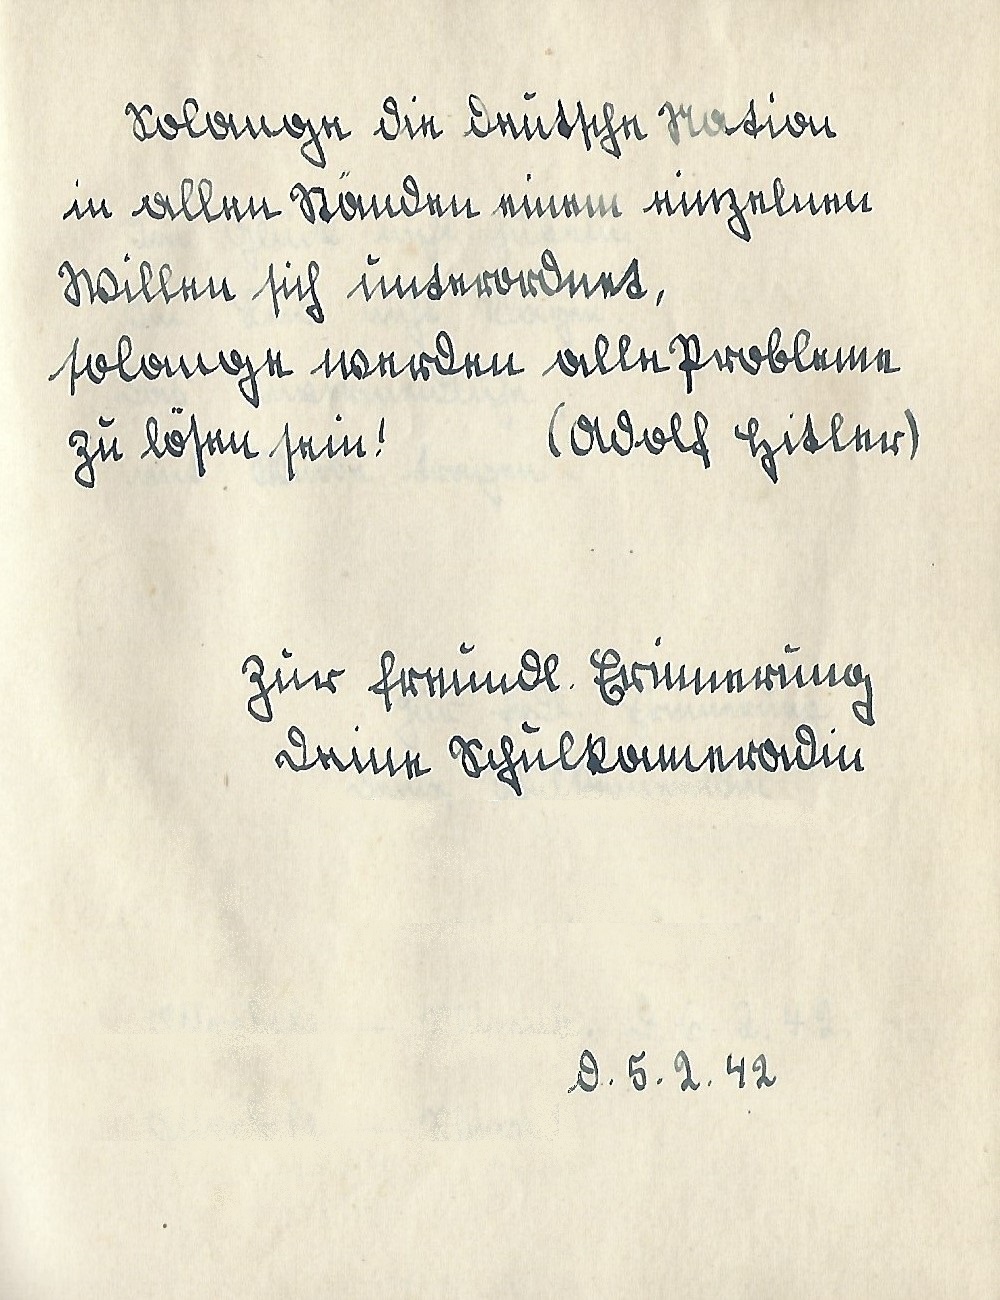 Solange die deutsche Nation
in allen Ständen einem einzelnen
Willen sich unterordnet,
solange werden alle Probleme
zu lösen sein! (Adolf Hitler)
Zur freundl. Erinnerung
Deine Schulkameradin
d. 5. 2. 42